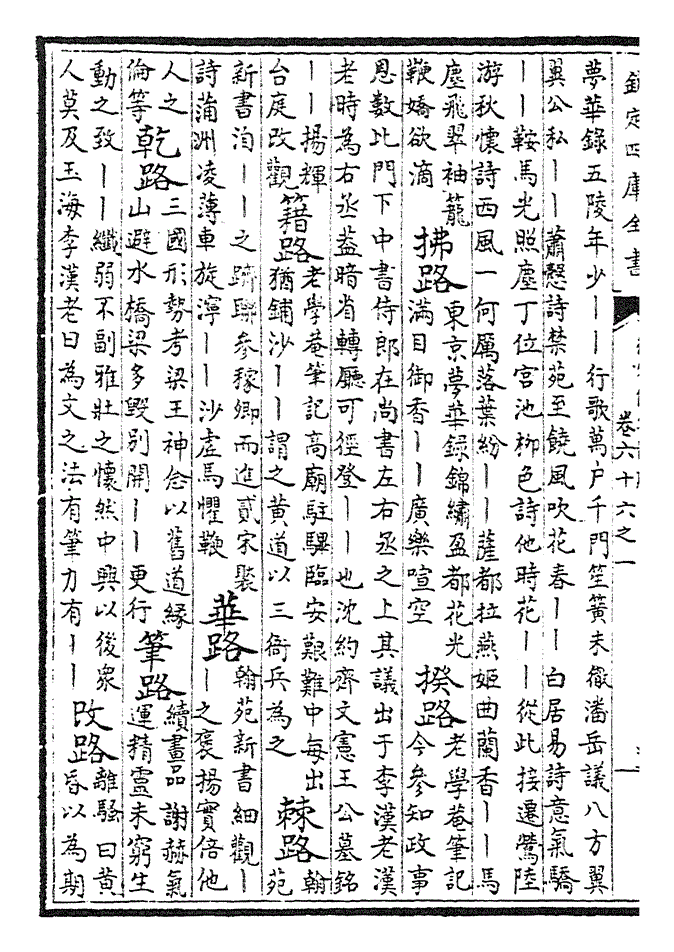 欽定四庫全書
卷六十六之一
夢華錄五陵年少｜｜行歌萬户千門笙簧未徹潘岳議八方翼
翼公私｜｜蕭慤詩禁苑至饒風吹花春｜｜白居易詩意氣驕
｜｜鞍馬光照塵丁位宮池柳色詩他時花｜｜從此接遷鶯陸
游秋懷詩西風一何厲落葉紛｜｜薩都拉燕姬曲蘭香｜｜馬
塵飛翠袖籠
鞭嬌欲滴
拂路
東京夢華録錦繡盈都花光
滿目御香｜｜廣樂喧空
揆路
老學菴筆記
今參知政事
恩數比門下中書侍郎在尚書左右丞之上其議出于李漢老漢
老時為右丞葢暗省轉廳可徑登｜｜也沈約齊文憲王公墓銘
｜｜揚輝
台庭改觀
籍路
老學菴筆記高廟駐驆臨安艱難中每出
猶鋪沙｜｜謂之黄道以三衙兵為之
棘路
翰
苑
新書洎｜｜之跡聯參稼卿而進貳宋褧
詩蒲洲凌薄車旋濘｜｜沙虚馬懼鞭
華路
翰苑新書細觀｜
｜之褒揚實倍他
人之
倫等
乾路
三國形勢考梁王神念以舊道縁
山避水橋梁多毀别開｜｜更行
筆路
續畫品謝赫氣
運精靈未窮生
動之致｜｜纖弱不副雅壯之懷然中興以後衆
人莫及玉海李漢老曰為文之法有筆力有｜｜
改路
離騷曰黄
昏以為期